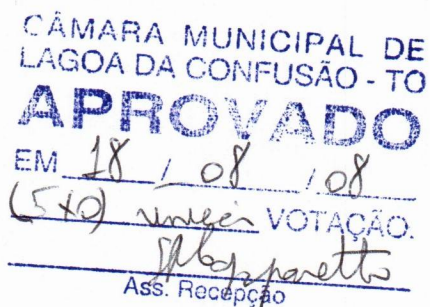 CÂMARA MUNICIPAL DE
LAGOA DA CONFUSÃO - TO
APROVADO
EM 18 / 08 / 08
(5x0) única VOTAÇÃO.
Ass. Recepção